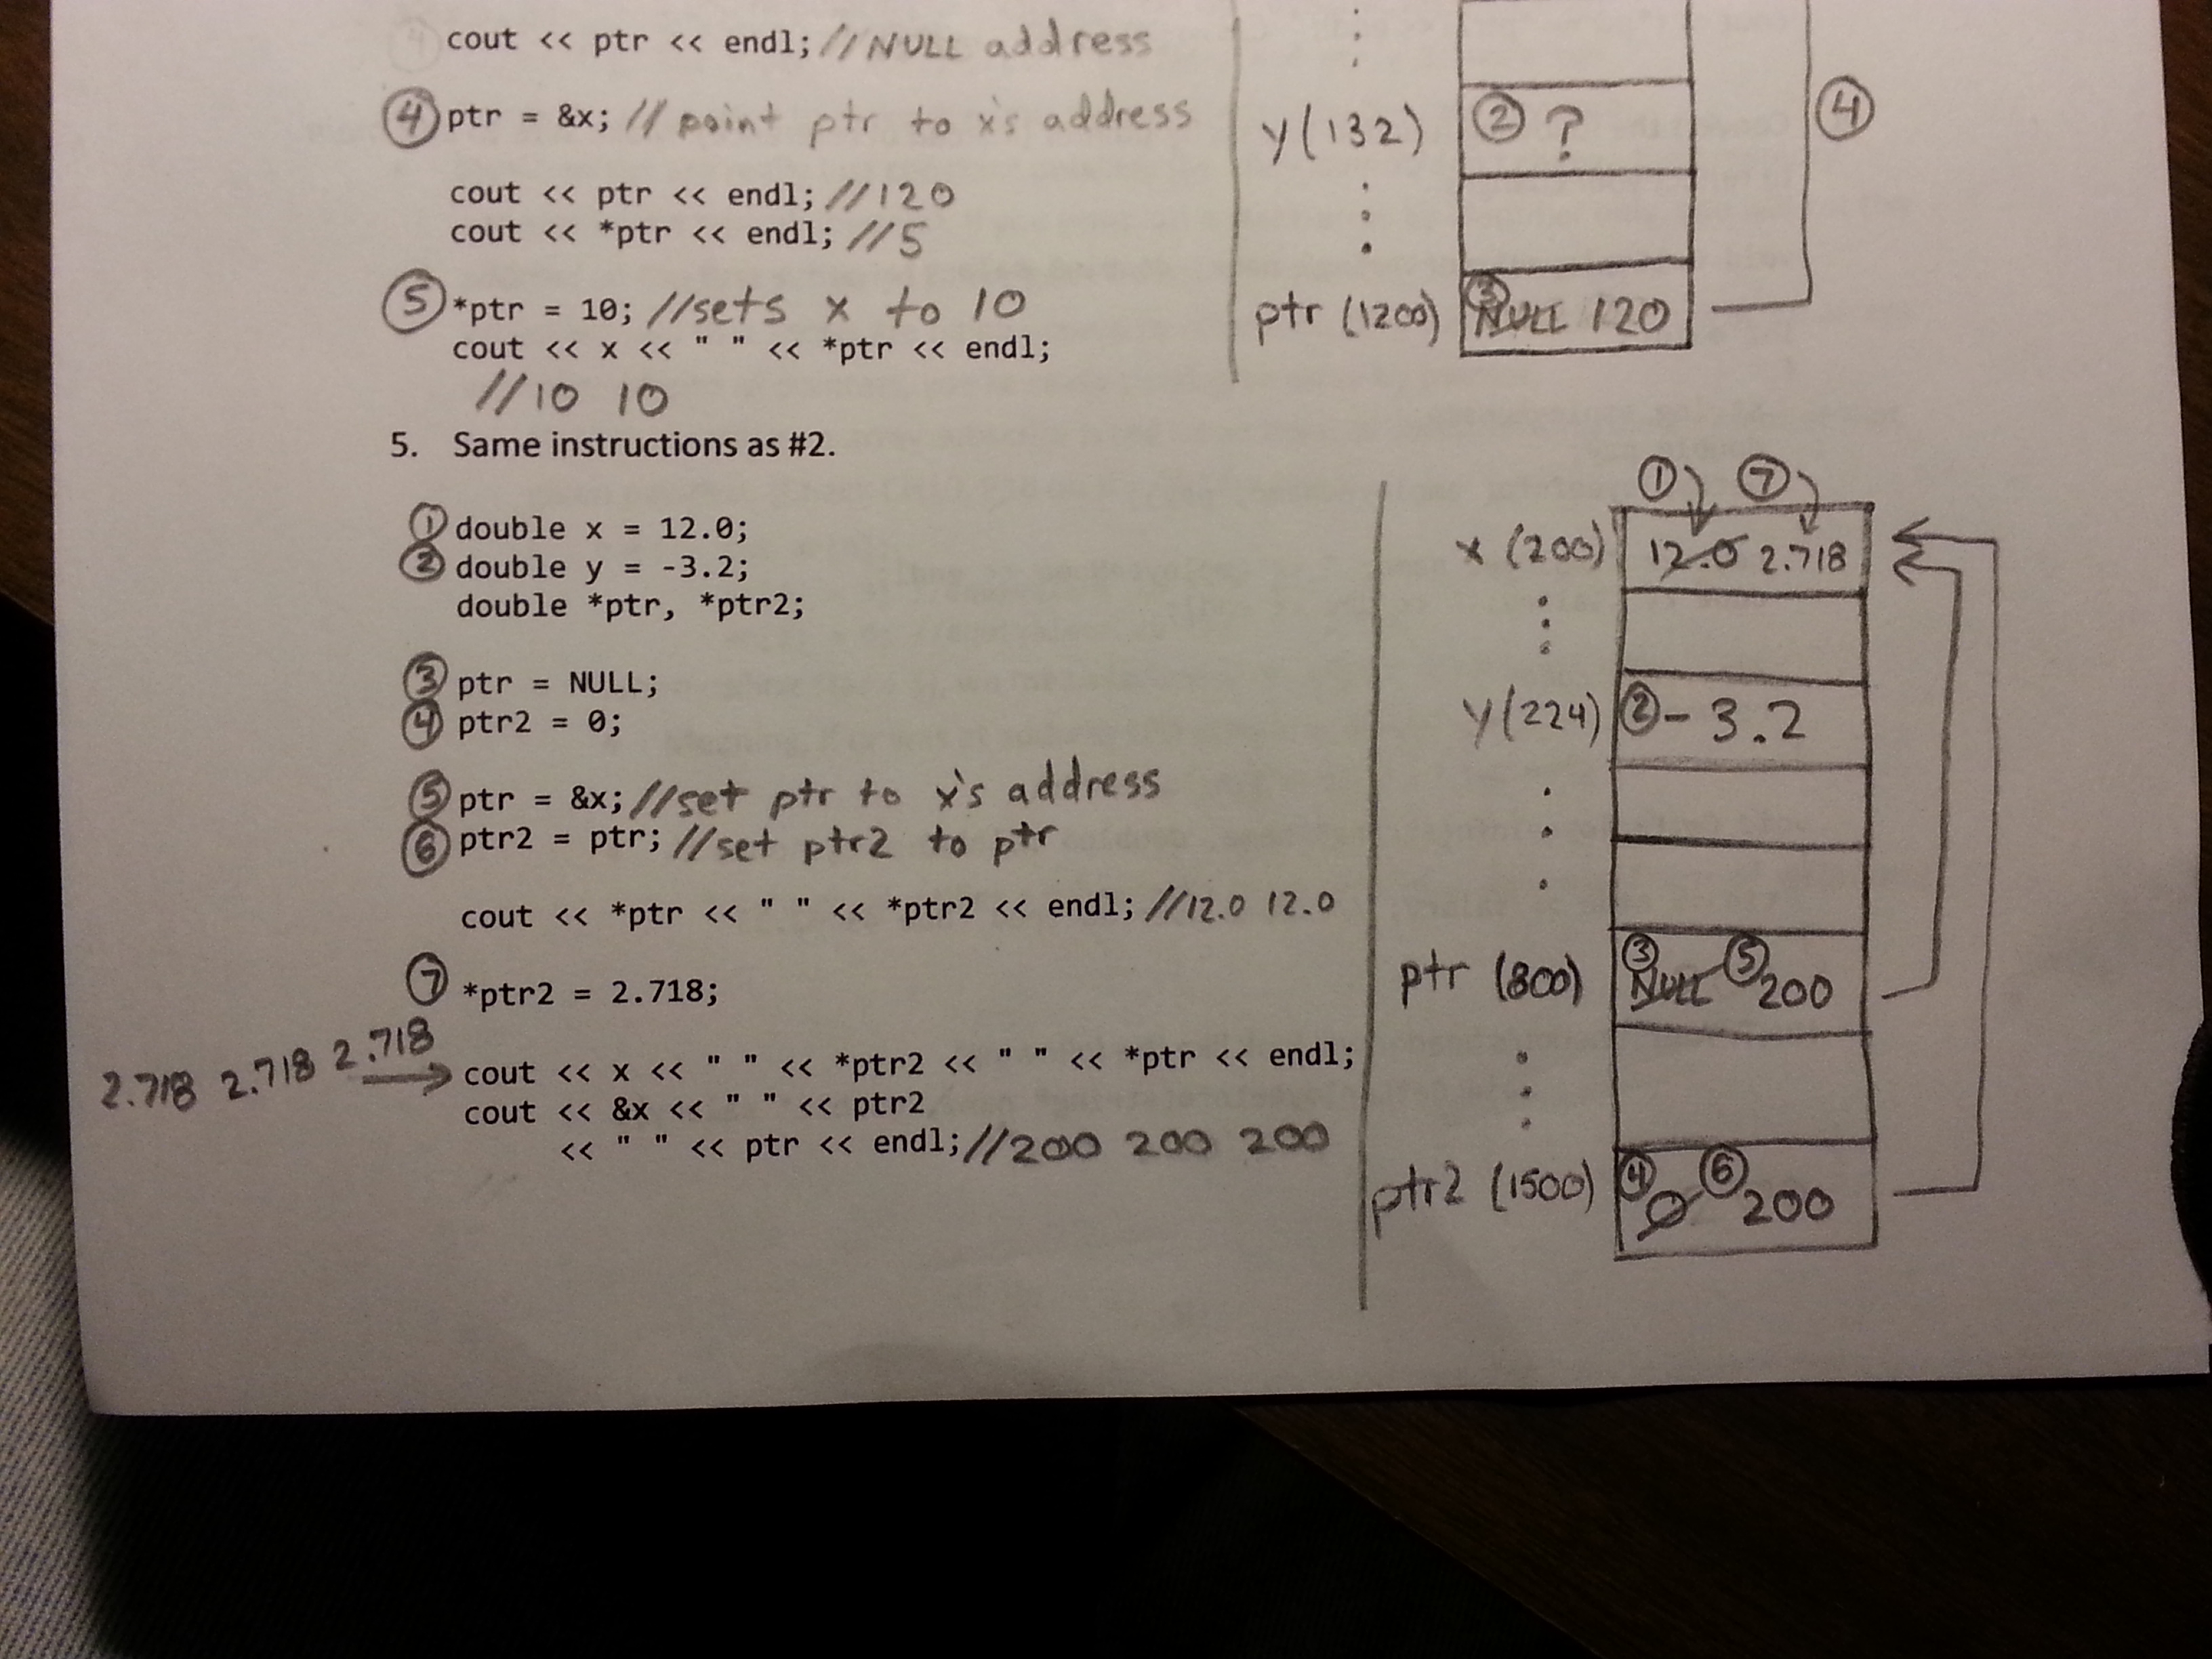 cout << ptr << endl; //NULL address
④ ptr = &x; // point ptr to x's address
cout << ptr << endl; //120
cout << *ptr << endl; //5
⑤ *ptr = 10; //sets x to 10
cout << x << " " << *ptr << endl;
//10 10
y(132) ② ?
④
ptr (1200) ③ NULL 120
5. Same instructions as #2.
① double x = 12.0;
② double y = -3.2;
double *ptr, *ptr2;
③ ptr = NULL;
④ ptr2 = 0;
⑤ ptr = &x; //set ptr to x's address
⑥ ptr2 = ptr; //set ptr2 to ptr
cout << *ptr << " " << *ptr2 << endl; //12.0 12.0
⑦ *ptr2 = 2.718;
2.718 2.718 2.718 → cout << x << " " << *ptr2 << " " << *ptr << endl;
cout << &x << " " << ptr2
<< " " << ptr << endl; //200 200 200
① ⑦
x (200) 12.0 2.718
y(224) ② -3.2
ptr (800) ③ NULL ⑤ 200
ptr2 (1500) ④ 0 ⑥ 200